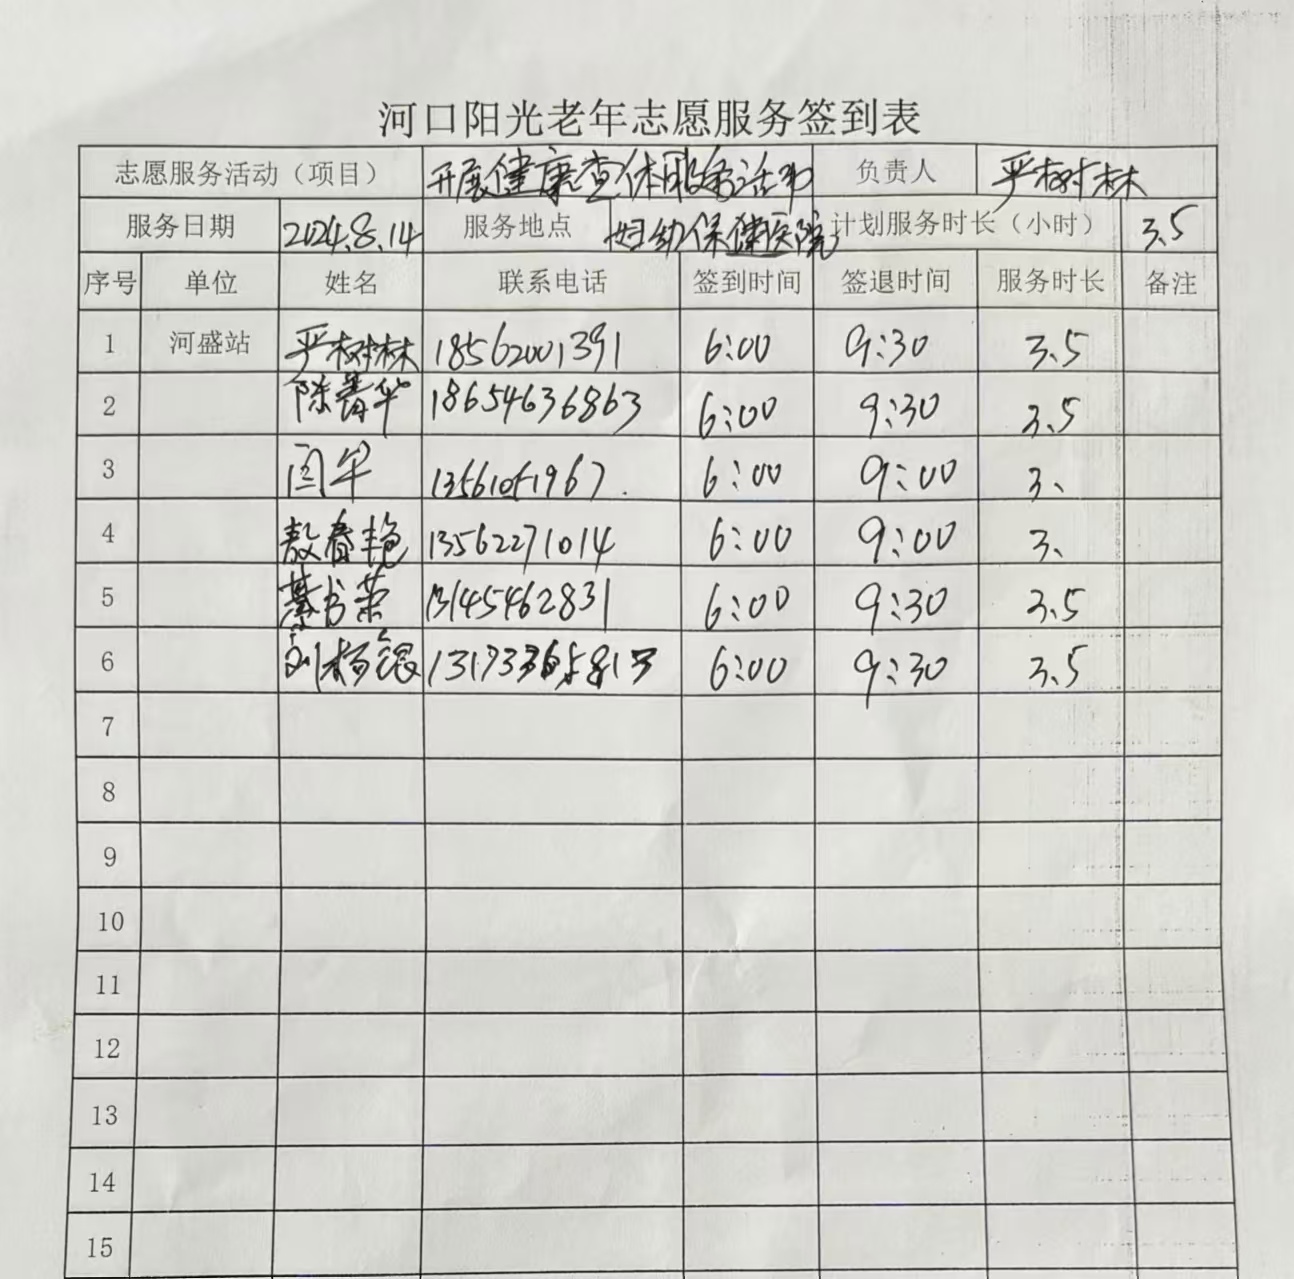 河口阳光老年志愿服务签到表
志愿服务活动（项目） 开展健康查体服务活动 负责人 严树林
服务日期 2024.8.14 服务地点 妇幼保健医院 计划服务时长（小时） 3.5
序号 单位 姓名 联系电话 签到时间 签退时间 服务时长 备注
1 河盛站 严树林 18562001391 6:00 9:30 3.5
2 陈菁华 18654636863 6:00 9:30 3.5
3 国军 13561051967. 6:00 9:00 3、
4 敖春艳 13562271014 6:00 9:00 3、
5 綦书荣 13145462831 6:00 9:30 3.5
6 刘杨银 6:00 9:30 3.5
7
8
9
10
11
12
13
14
15